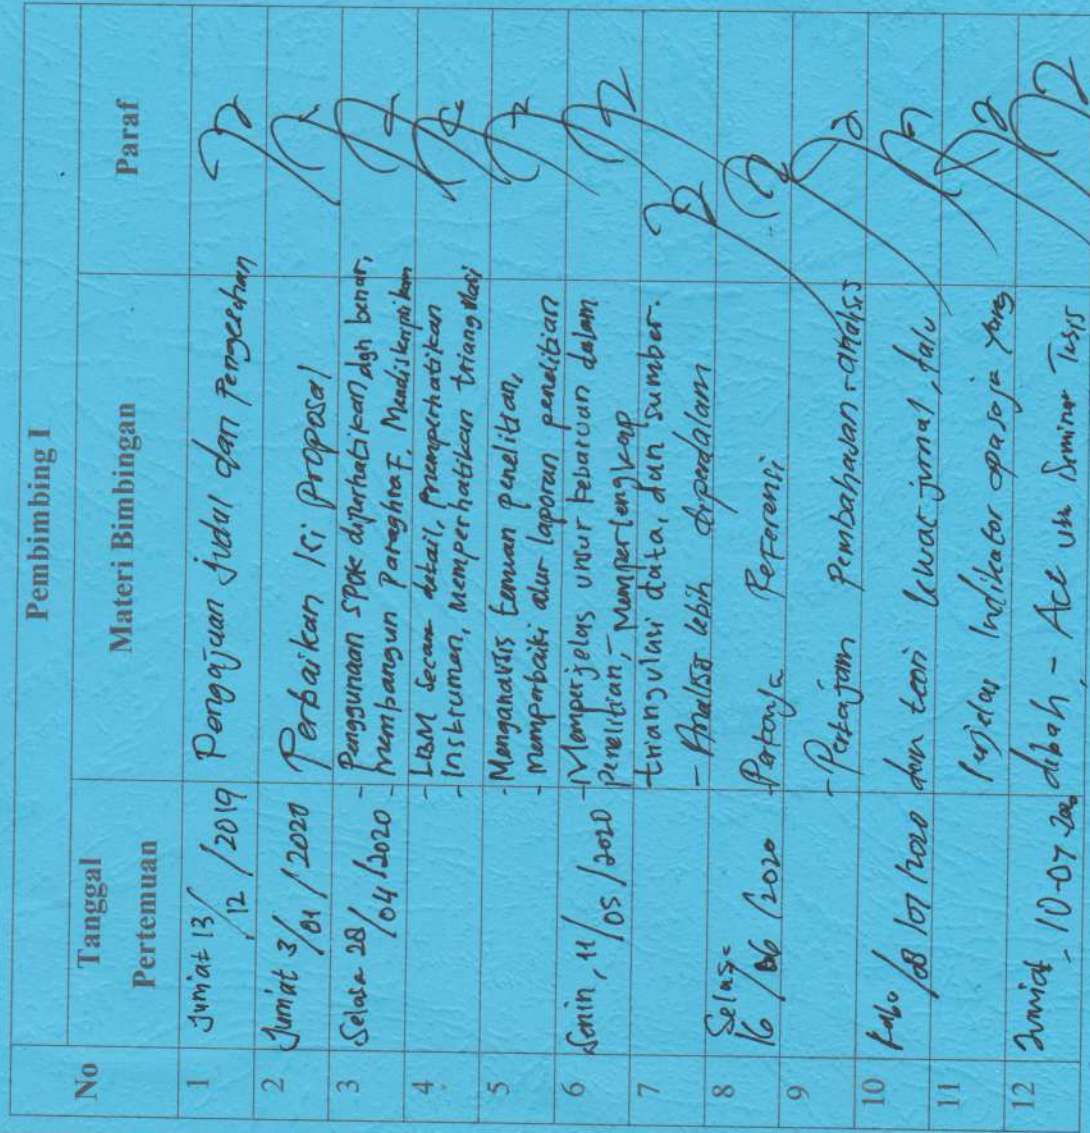 Pembimbing I
No
Tanggal
Pertemuan
Materi Bimbingan
Paraf
1
Jum'at 13
/12/2019
Pengajuan judul dan Pengesahan
2
Jum'at 3
/01/2020
Perbaikan isi proposal
3
Selasa 28
/04/2020
- Penggunaan SPOK diperhatikan dgn benar,
- membangun Paraghraf. Mendiskripsikan
4
- LBM Secara detail, memperhatikan
- Instrumen, Memperhatikan triangulasi
5
- Menganalisis temuan penelitian,
- memperbaiki alur laporan penelitian
6
Senin, 11
/05/2020
- Memperjelas unsur kebaruan dalam
penelitian, - Memperlengkap
7
triangulasi data, dan sumber.
- Analisis lebih diperdalam
8
Selasa
16/06/2020
Pertajam Referensi
9
- Pertajam Pembahasan - analisis
10
Rabu
/08/07/2020
dan teori lewat jurnal, lalu
11
Perjelas Indikator apa saja yang
12
Jum'at
- 10-07-2020
diubah - Acc utk Seminar Tesis